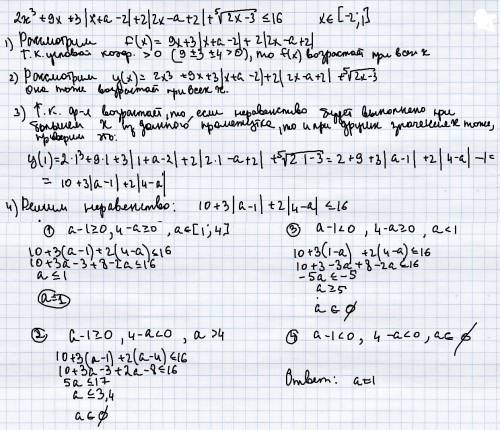 2x³ + 9x + 3|x+a-2| + 2|2x-a+2| + ⁵√2x-3 ≤ 16 x∈[-2;1]
1) Рассмотрим f(x) = 9x + 3|x+a-2| + 2|2x-a+2|
Т.к. угловой коэф. > 0 (9±3±4>0), то f(x) возрастает при всех x
2) Рассмотрим y(x) = 2x³ + 9x + 3|x+a-2| + 2|2x-a+2| + ⁵√2x-3
Она тоже возрастает при всех x.
3) Т.к. ф-я возрастает, то если неравенство будет выполнено при
большем x из данного промежутка, то и при других значениях x тоже,
проверим это.
y(1) = 2·1³ + 9·1 + 3|1+a-2| + 2|2·1-a+2| + ⁵√2·1-3 = 2+9+3|a-1| + 2|4-a| -1 =
= 10+3|a-1| + 2|4-a|
4) Решим неравенство: 10+3|a-1| + 2|4-a| ≤ 16
① a-1≥0, 4-a≥0, a∈[1;4]
10+3(a-1)+2(4-a) ≤ 16
10+3a-3+8-2a ≤ 16
a ≤ 1
a=1
② a-1≥0, 4-a<0, a>4
10+3(a-1)+2(a-4) ≤ 16
10+3a-3+2a-8 ≤ 16
5a ≤ 17
a ≤ 3,4
a∈∅
③ a-1<0, 4-a≥0, a<1
10+3(1-a)+2(4-a) ≤ 16
10+3-3a+8-2a ≤ 16
-5a ≤ -5
a ≥ 5
a∈∅
④ a-1<0, 4-a<0, a∈∅
Ответ: a=1